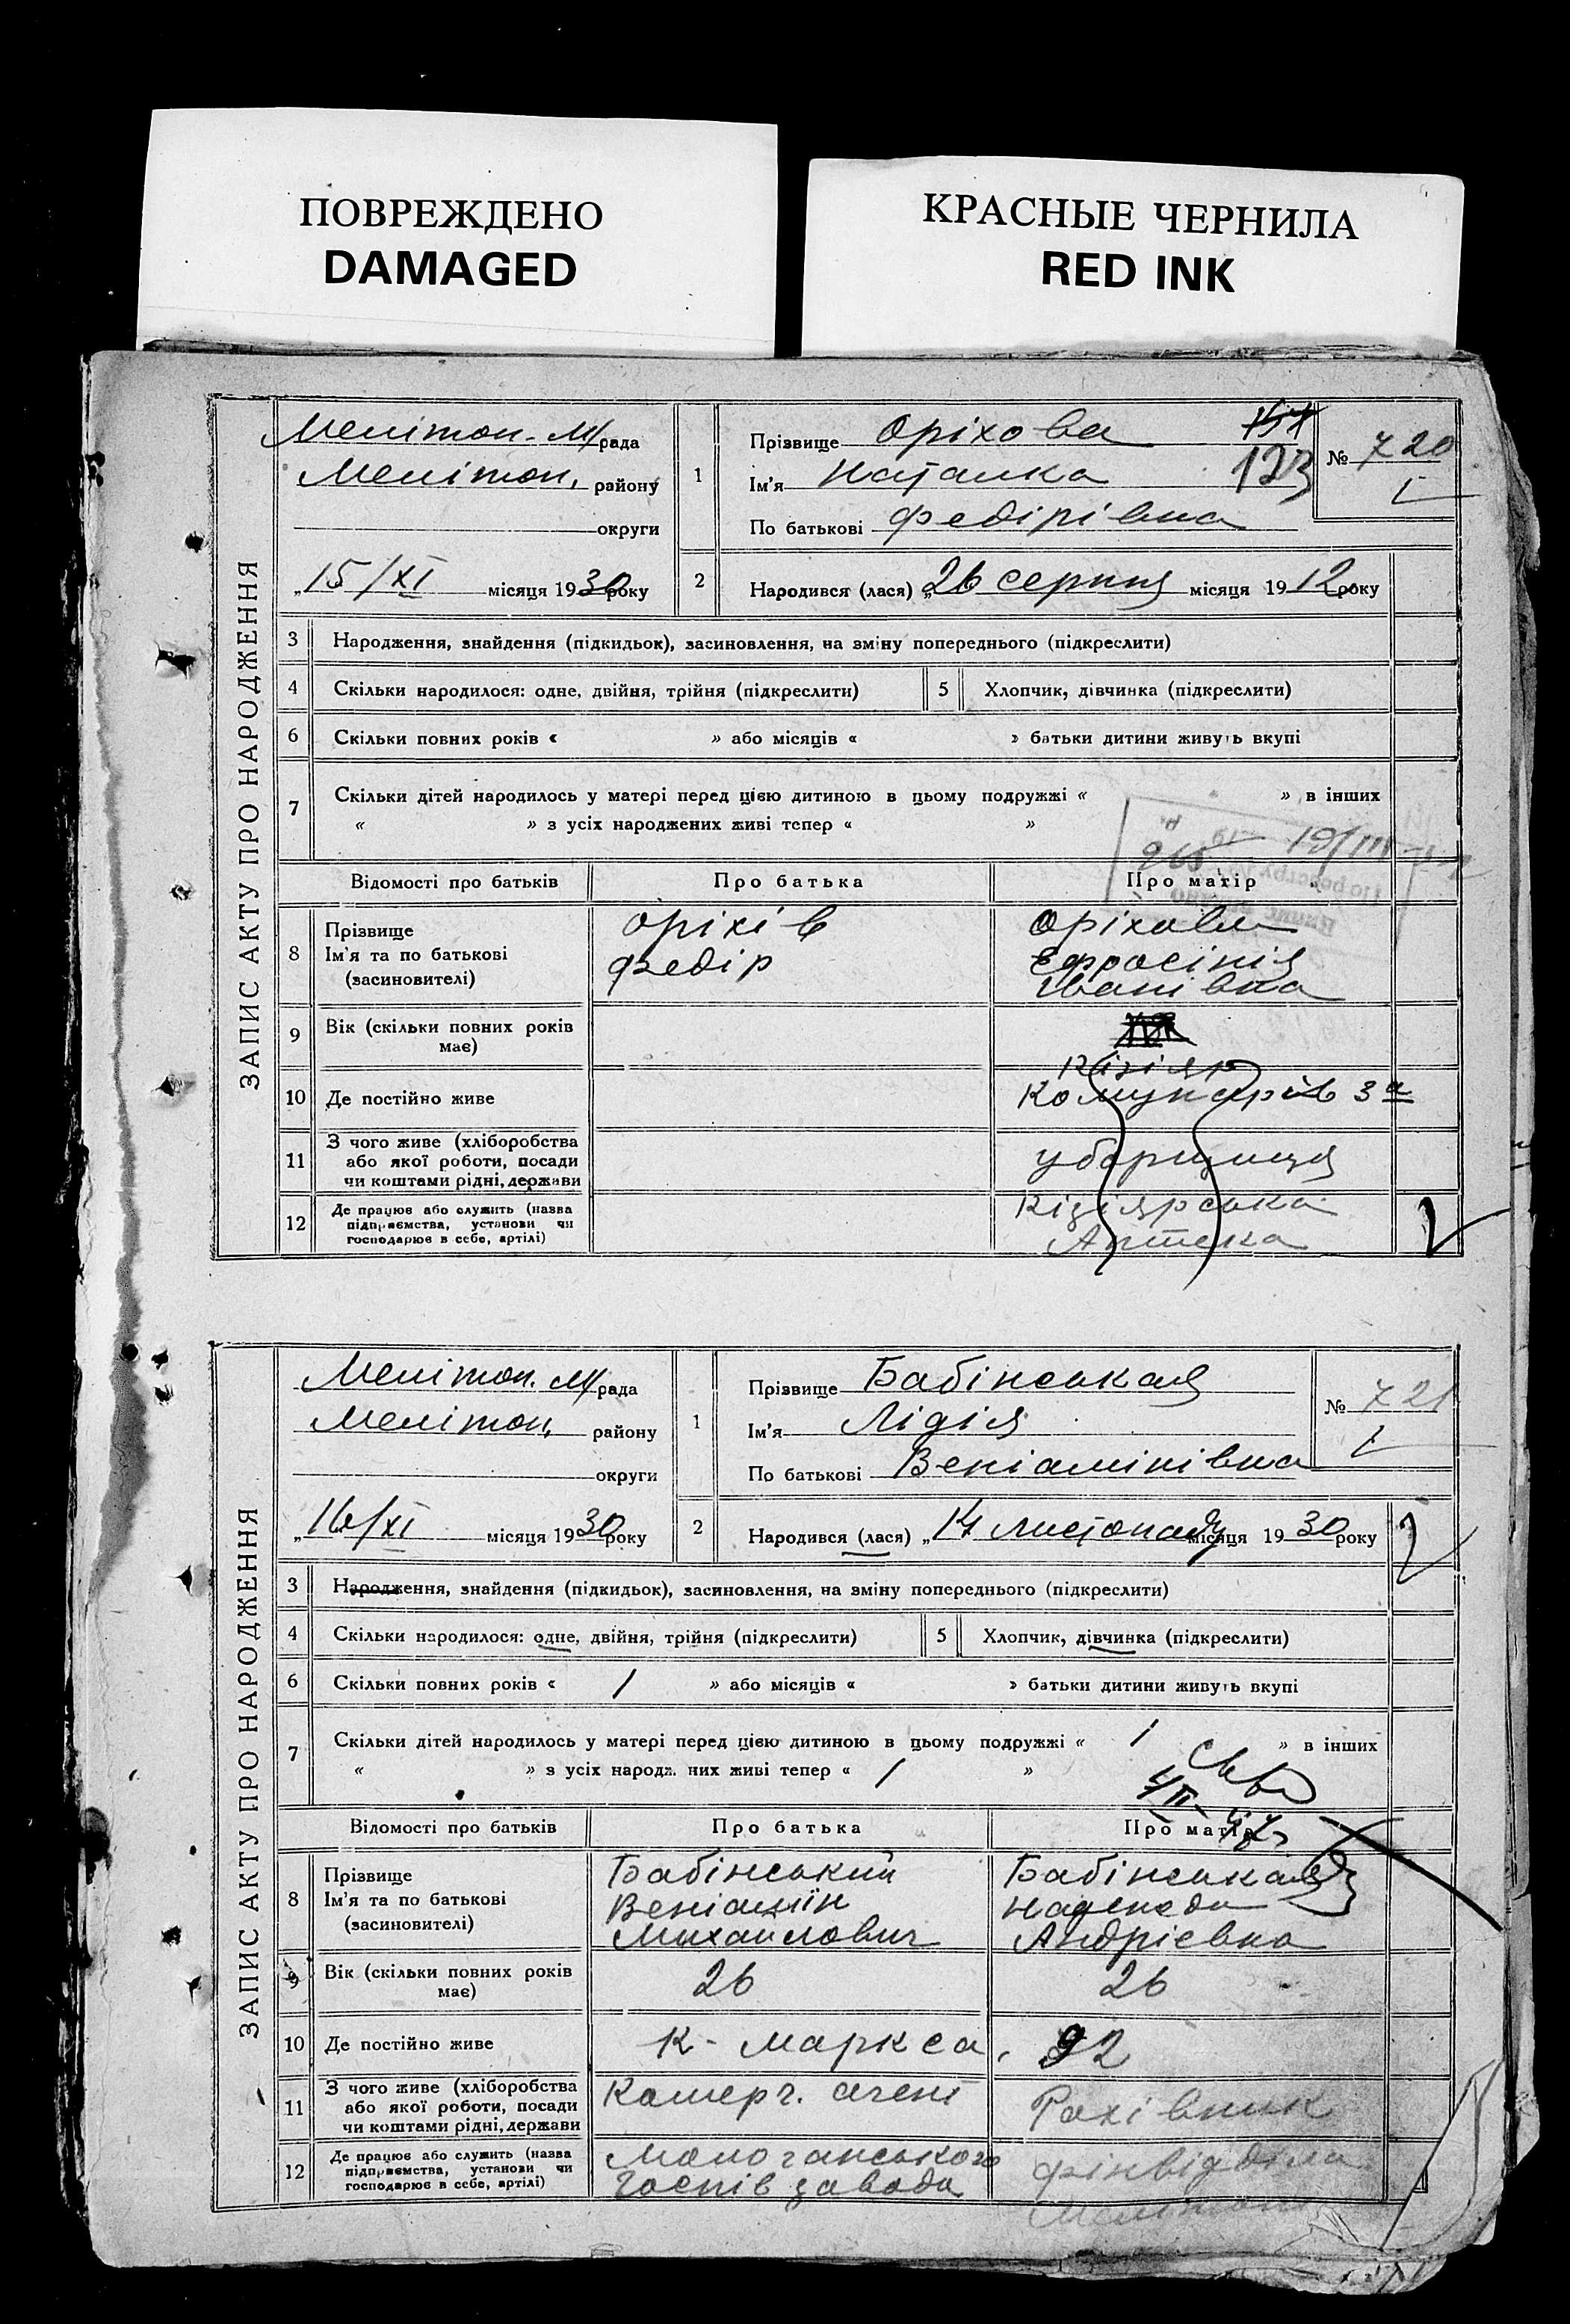 ПОВРЕЖДЕНО
DAMAGED
КРАСНЫЕ ЧЕРНИЛА
RED INK
ЗАПИС АКТУ ПРО НАРОДЖЕННЯ
Мелітоп. М/рада
Мелітоп. району
округи
„15/XI місяця 1930 року
1
Прізвище Оріхова
Ім'я Наталка
По батькові Федірівна
123
№ 720
2
Народився (лася) „26 серпня місяця 1912 року
3 Народження, знайдення (підкидьок), засиновлення, на зміну попереднього (підкреслити)
4 Скільки народилося: одне, двійня, трійня (підкреслити)
5 Хлопчик, дівчинка (підкреслити)
6 Скільки повних років « » або місяців « » батьки дитини живуть вкупі
7 Скільки дітей народилось у матері перед цією дитиною в цьому подружжі « » в інших
« » з усіх народжених живі тепер « »
Відомості про батьків
Про батька
Про матір
8 Прізвище
Ім'я та по батькові
(засиновителі)
Оріхів
Федір
Оріхова
Єфросінія
Іванівна
9 Вік (скільки повних років
має)
10 Де постійно живе
Кізіяр
Комунарів 3а
11 З чого живе (хліборобства
або якої роботи, посади
чи коштами рідні, держави
уборщиця
12 Де працює або служить (назва
підприємства, установи чи
господарює в себе, артілі)
Кізіярська
Аптека
ЗАПИС АКТУ ПРО НАРОДЖЕННЯ
Мелітоп. М/рада
Мелітоп. району
округи
„16/XI місяця 1930 року
1
Прізвище Бабінськая
Ім'я Лідія
По батькові Веніамінівна
№ 721
2
Народився (лася) „14 листопаду місяця 1930 року
3 Народження, знайдення (підкидьок), засиновлення, на зміну попереднього (підкреслити)
4 Скільки народилося: одне, двійня, трійня (підкреслити)
5 Хлопчик, дівчинка (підкреслити)
6 Скільки повних років « 1 » або місяців « » батьки дитини живуть вкупі
7 Скільки дітей народилось у матері перед цією дитиною в цьому подружжі « 1 » в інших
« » з усіх народж. них живі тепер « 1 »
Відомості про батьків
Про батька
Про матір
8 Прізвище
Ім'я та по батькові
(засиновителі)
Бабінський
Веніамін
Михайлович
Бабінськая
Надежда
Андрієвна
9 Вік (скільки повних років
має)
26
26
10 Де постійно живе
К-Маркса, 92
11 З чого живе (хліборобства
або якої роботи, посади
чи коштами рідні, держави
Комерч. агент
Рахівник
12 Де працює або служить (назва
підприємства, установи чи
господарює в себе, артілі)
Молочанського
Госпів завода
фінвідділа